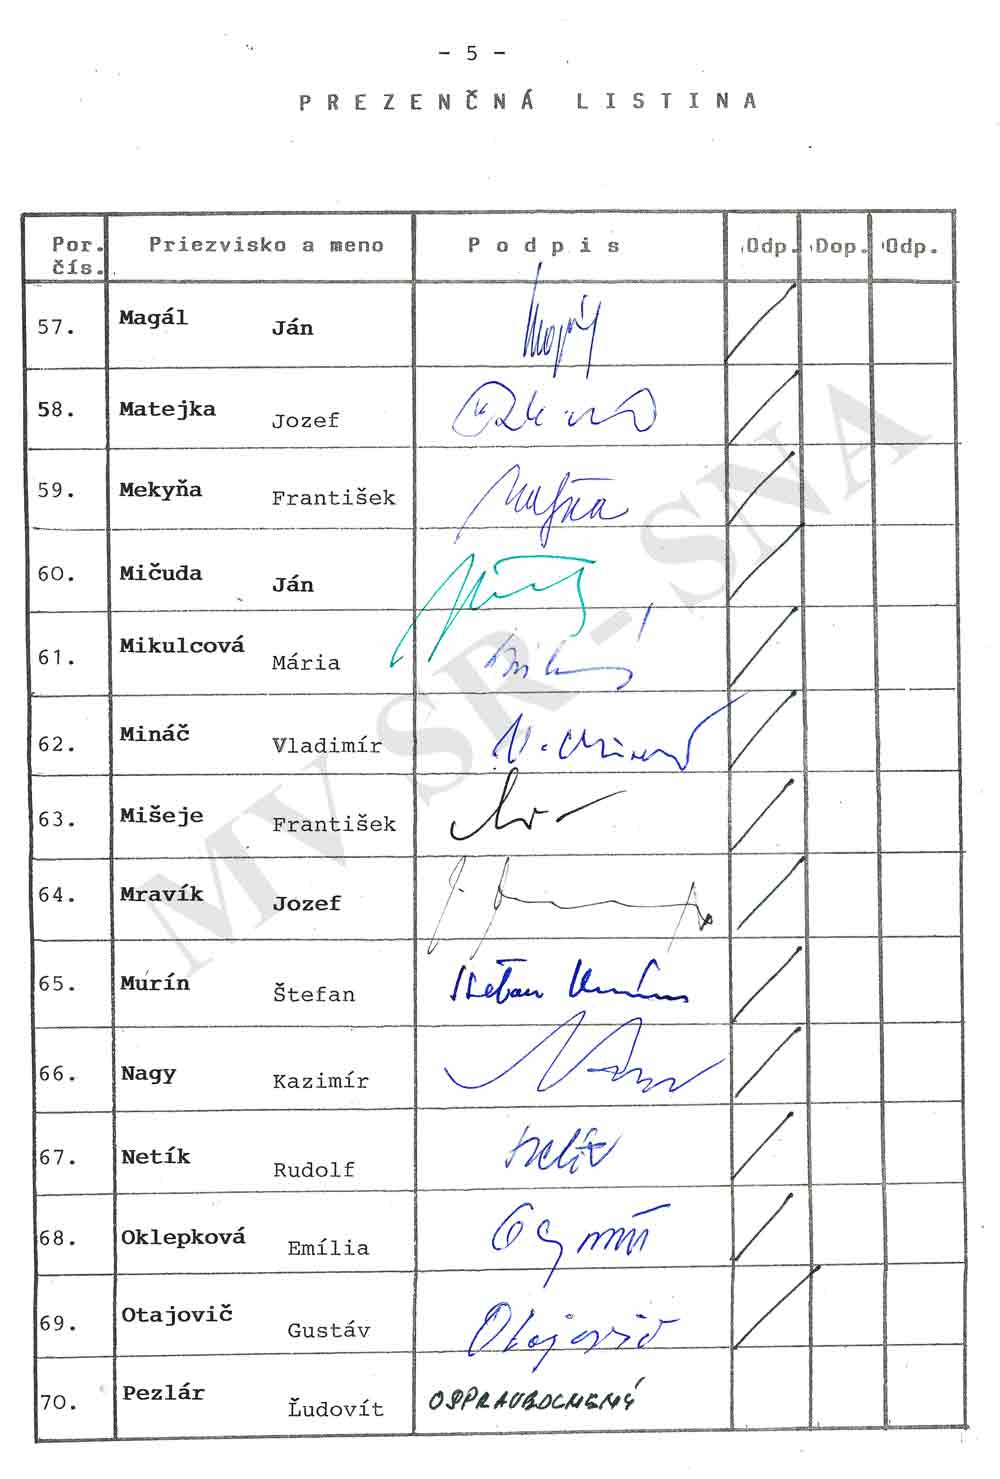 - 5 -
PREZENČNÁ LISTINA
Por. čís. Priezvisko a meno Podpis Odp. Dop. Odp.
57. Magál Ján
58. Matejka Jozef
59. Mekyňa František
60. Mičuda Ján
61. Mikulcová Mária
62. Mináč Vladimír
63. Mišeje František
64. Mravík Jozef
65. Múrín Štefan Štefan Múrín
66. Nagy Kazimír
67. Netík Rudolf Netík
68. Oklepková Emília
69. Otajovič Gustáv Otajovič
70. Pezlár Ľudovít OSPRAVEDLNENÝ
MV SR - SNA